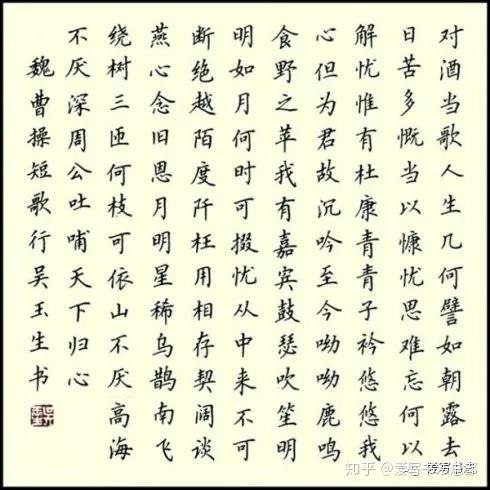 对酒当歌人生几何譬如朝露去
日苦多慨当以慷忧思难忘何以
解忧惟有杜康青青子衿悠悠我
心但为君故沉吟至今呦呦鹿鸣
食野之苹我有嘉宾鼓瑟吹笙明
明如月何时可掇忧从中来不可
断绝越陌度阡枉用相存契阔谈
燕心念旧恩月明星稀乌鹊南飞
绕树三匝何枝可依山不厌高海
不厌深周公吐哺天下归心
魏曹操短歌行吴玉生书
知乎